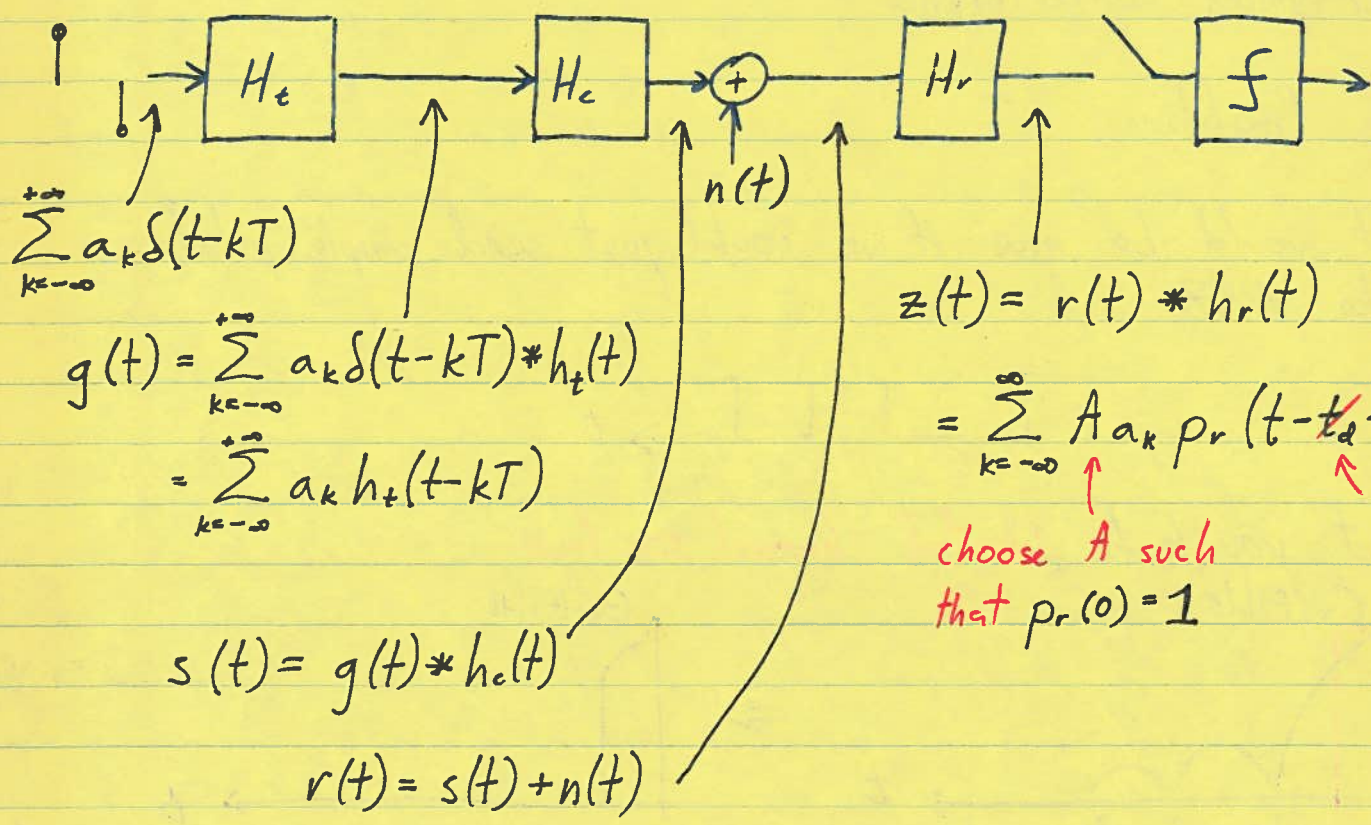 H_t H_c + H_r f
n(t)
+∞
∑ a_k δ(t-kT)
k=-∞
g(t) = ∑_{k=-∞}^{+∞} a_k δ(t-kT) * h_t(t)
= ∑_{k=-∞}^{+∞} a_k h_t(t-kT)
s(t) = g(t) * h_c(t)
r(t) = s(t) + n(t)
z(t) = r(t) * h_r(t)
= ∑_{k=-∞}^{∞} A a_k p_r (t - t_d -
choose A such
that p_r(0) = 1